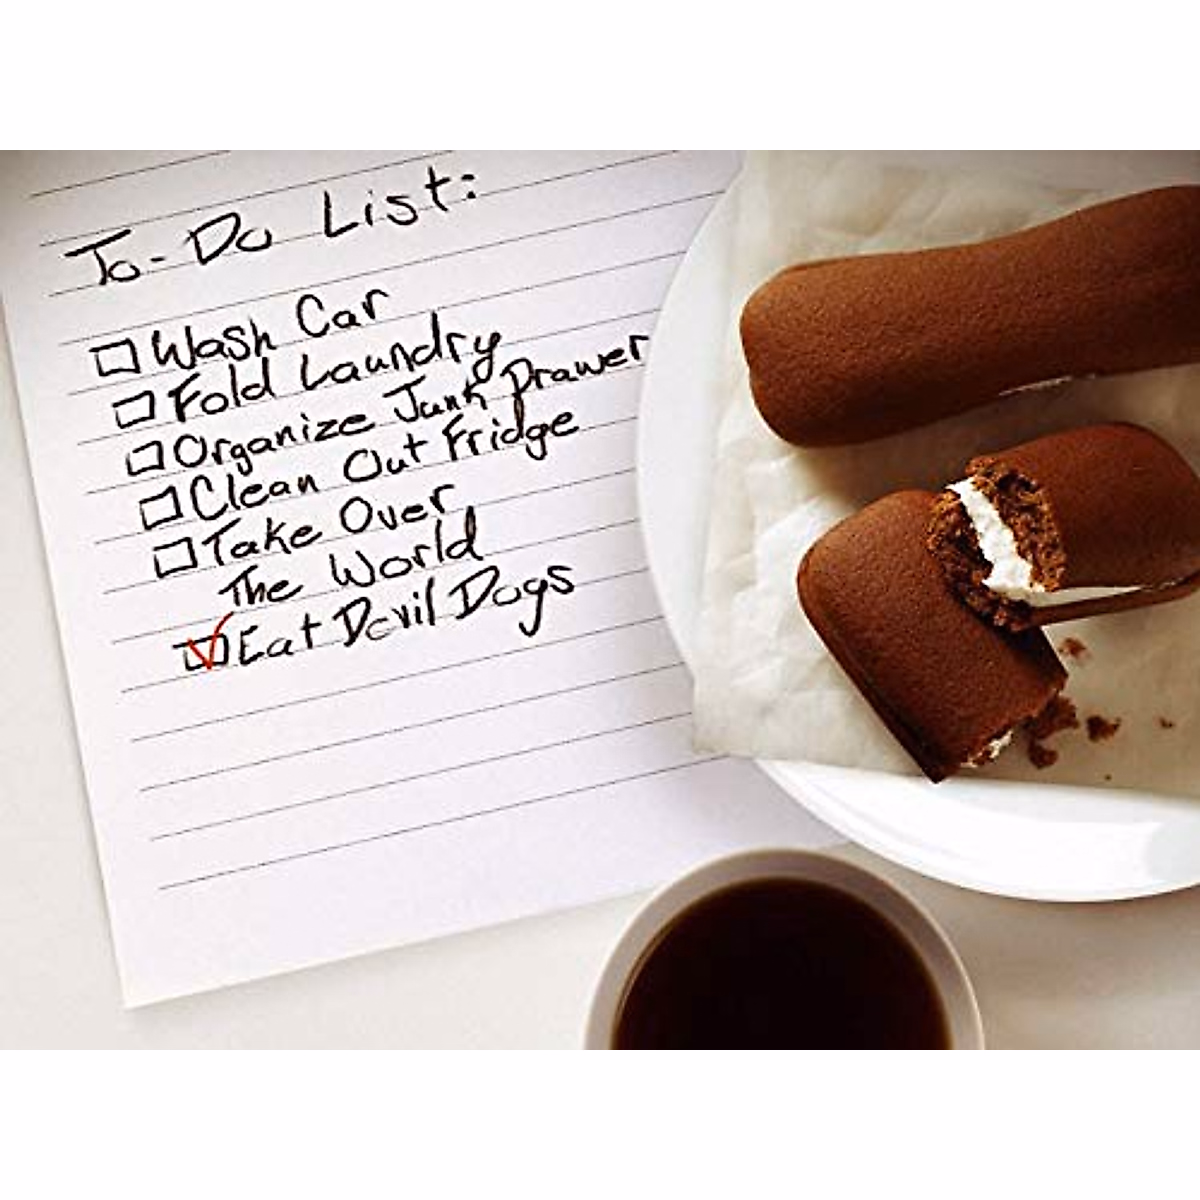 To-Do List:
Wash Car
Fold Laundry
Organize Junk Drawer
Clean Out Fridge
Take Over
The World
Eat Devil Dogs